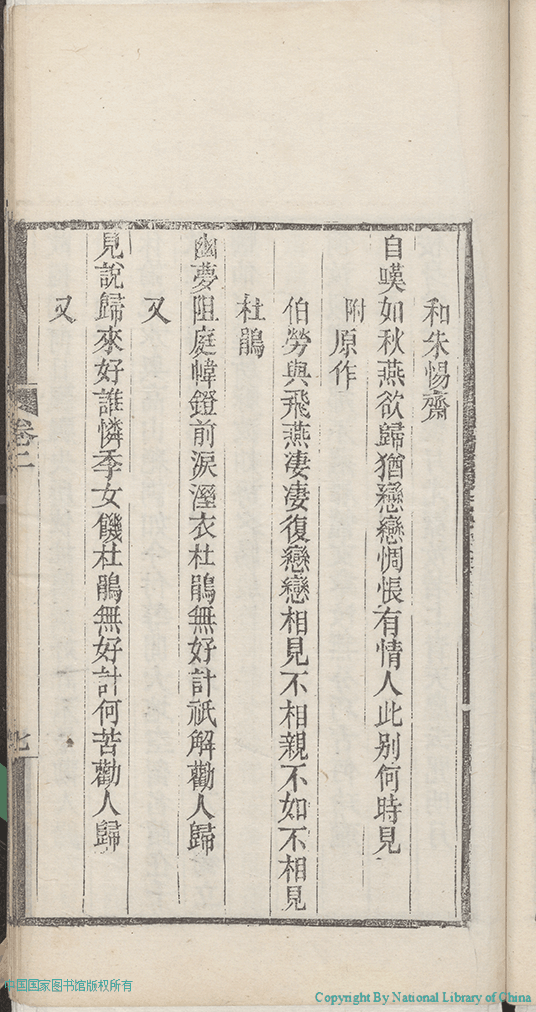 和朱惕齋
自嘆如秋燕欲歸猶戀戀惆悵有情人此别何時見
附原作
伯勞與飛燕凄凄復戀戀相見不相親不如不相見
杜鵑
幽夢阻庭幃鐙前淚溼衣杜鵑無好計祇解勸人歸
又
見說歸來好誰憐季女饑杜鵑無好計何苦勸人歸
又
卷二
七
中国国家图书馆版权所有
Copyright By National Library of China